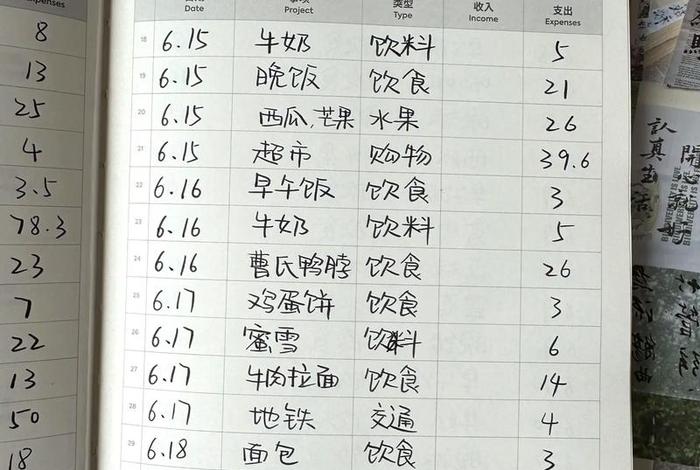 Expenses
8
13
25
4
3.5
78.3
23
7
22
13
50
18
Date Project 类型 Type 收入 Income 支出 Expenses
18 6.15 牛奶 饮料 5
19 6.15 晚饭 饮食 21
20 6.15 西瓜,芒果 水果 26
21 6.15 超市 购物 39.6
22 6.16 早午饭 饮食 3
23 6.16 牛奶 饮料 5
24 6.16 曹氏鸭脖 饮食 26
25 6.17 鸡蛋饼 饮食 3
26 6.17 蜜雪 饮料 6
27 6.17 牛肉拉面 饮食 14
28 6.17 地铁 交通 4
29 6.18 面包 饮食 3
認真生活
開心就好